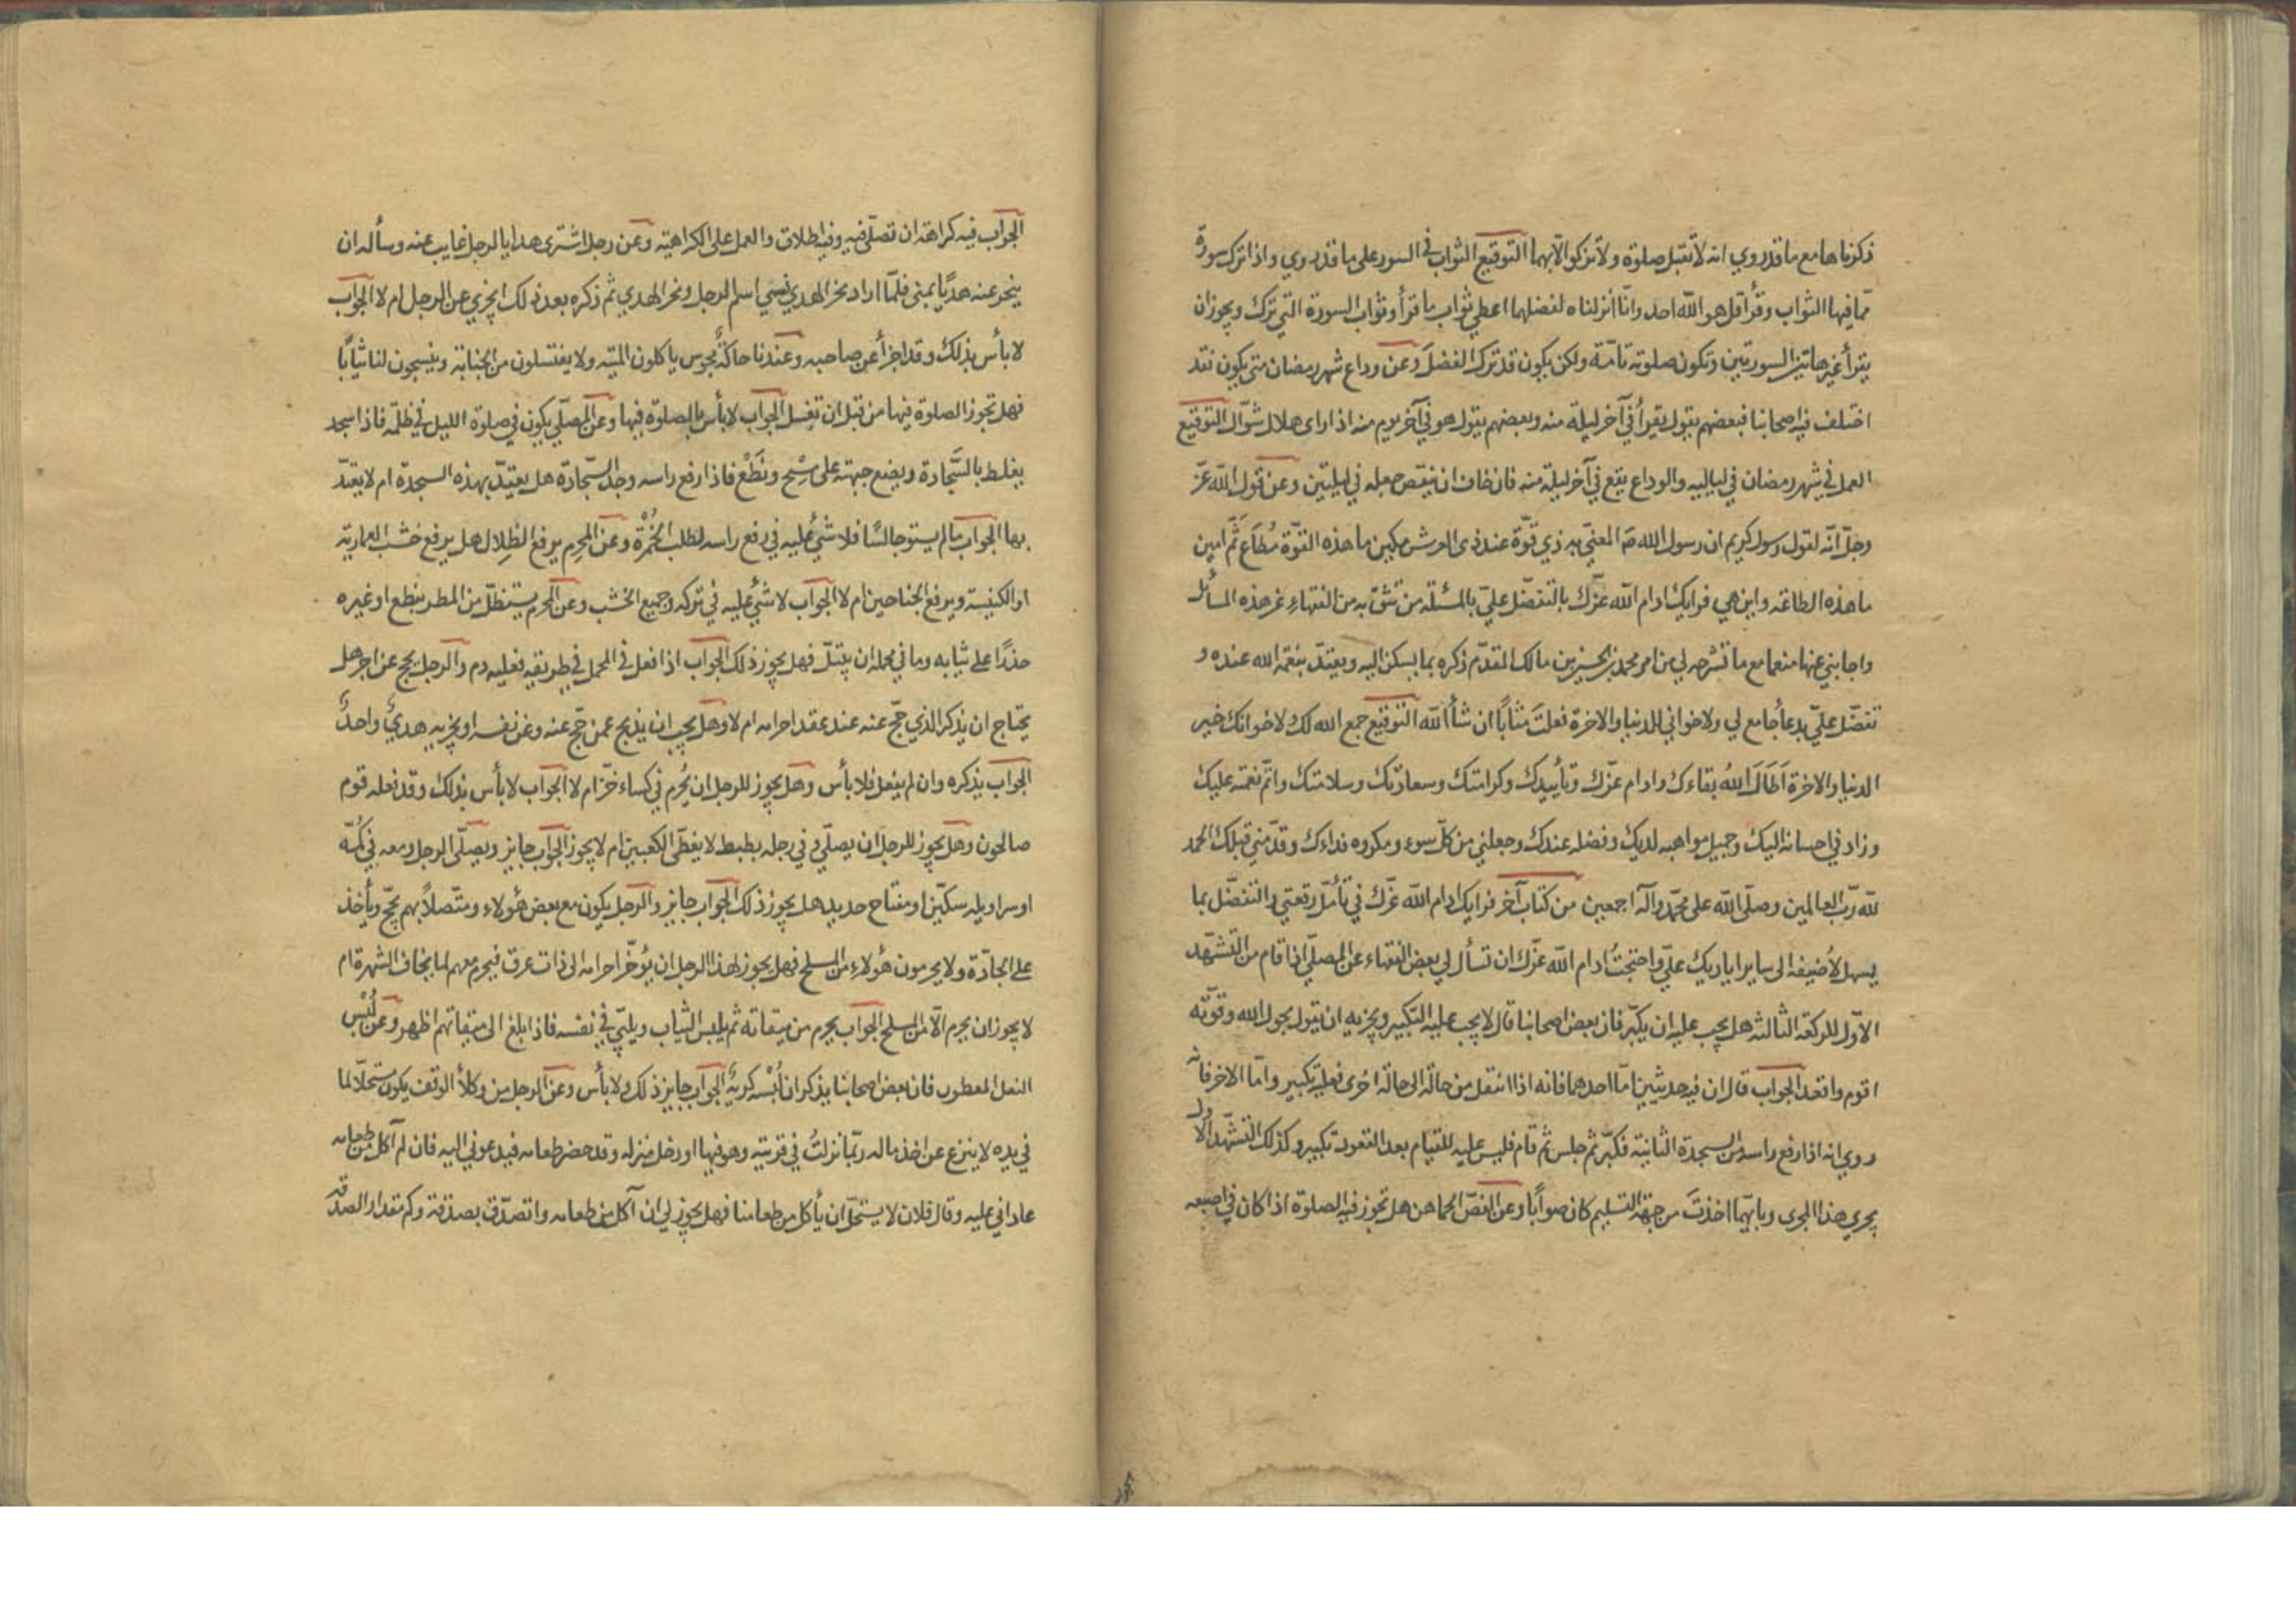 ذكرناها مع ما قد روي انه لا تقبل صلوة ولا تزكوا الّا بهما التوقيع الثواب في السور على ما قد روي واذا ترك سورة
ممّا فيها الثواب وقرأ قل هو الله احد وانّا أنزلناه لفضلهما اعطي ثواب ما قرأ وثواب السورة التي ترك ويجوز ان
يقرأ غير هاتين السورتين وتكون صلوته تامّة ولكن يكون قد ترك الفضلَ وعن وداع شهر رمضان متى يكون فقد
اختلف فيه اصحابنا فبعضهم يقول يقرأ في آخر ليلة منه وبعضهم يقول هو في آخر يوم منه اذا رأى هلال شوّال التوقيع
العمل في شهر رمضان في لياليه والوداع يقع في آخر ليلة منه فان خاف ان ينقص جعله في ليلتين وعن قول الله عزّ
وجلّ انّه لقول رسول كريم ان رسول الله صَ المعنيّ به ذي قوّة عند ذي العرش مكين ما هذه القوّة مُطَاعٍ ثَمَّ أمين
ما هذه الطاعة واين هي فرايك ادام الله عزّك بالتفضّل عليّ بالمسئلة من تثق به من الفقهاءِ عن هذه المسائل
واجابني عنها منعما مع ما تشرحه لي من امر محمد بن الحسين بن مالك المقدّم ذكره بما يسكن اليه ويعتدّ بنعمة الله عنده و
تفضّل عليّ بدعاً جامع لي ولاخواني للدنيا والاخرة فعلتَ مثاباً ان شأ الله التوقيع جمع الله لك ولاخوانك خير
الدنيا والاخرة أطَالَ اللهُ بقاءك وادام عزّك وتأييدك وكرامتك وسعادتك وسلامتك واتمّ نعمته عليك
وزاد في احسانه اليك وجميل مواهبه لديك وفضله عندك وجعلني من كلّ سوء ومكروه فداءك وقدّمني قبلك الحمد
لله ربّ العالمين وصلّى الله على محمّد وآله اجمعين من كتاب آخر فرايك ادام الله عزّك في تأمّل رقعتي والتفضّل بما
يسهل لأضيفه الى ساير اياديك عليّ واحتجتُ ادام الله عزّك ان تسأل لي بعض الفقهاء عن المصلّي اذا قام من التشهّد
الاوّل للركعة الثالثة هل يجب عليه ان يكبّر فان بعض اصحابنا قال لا يجب عليه التكبير ويجزيه ان يقول بحول الله وقوّته
اقوم واقعد الجواب قال ان فيه حديثين امّا احدهما فانه اذا انتقل من حالة الى حالة اخرى فعليه تكبير وامّا الاخر فانه
روي انه اذا رفع راسه من السجدة الثانية فكبّر ثم جلس ثم قام فليس عليه للقيام بعد القعود تكبير وكذلك التشهّد الاول
يجري هذا المجرى وبايّهما اخذتَ من جهة التسليم كان صواباً وعن الفصّ الخماهن هل تجوز فيه الصلوة اذا كان في اصبعه
الجواب فيه كراهة ان تصلّى فيه وفيه اطلاق والعمل على الكراهية وعن رجل اشترى هدايا لرجل غايب عنه وسأله ان
ينحر عنه هديًا بمنى فلمّا اراد نحر الهدي نسي اسم الرجل ونحر الهدي ثم ذكره بعد ذلك ايجزي عن الرجل ام لا الجواب
لا بأس بذلك وقد اجزأ عن صاحبه وعندنا حاكةٌ مجوس ياكلون الميتة ولا يغتسلون من الجنابة وينسجون لنا ثياباً
فهل تجوز الصلوة فيها من قبل ان تغسل الجواب لا بأس بالصلوة فيها وعن المصلّي يكون في صلوة الليل في ظلمة فاذا سجد
يغلط بالسَّجادة ويضع جبهته على مِسْحٍ ونَطْعٍ فاذا رفع راسه وجد السّجادة هل يعتدّ بهذه السجدة ام لا يعتدّ
بها الجواب ما لم يستو جالسًا فلا شيء عليه في رفع راسه لطلب الخُمْرة وعن المحرم يرفع الظِلال هل يرفع خشب العمارية
او الكنيسة ويرفع الجناحين ام لا الجواب لا شيء عليه في تركه وجميع الخشب وعن المحرم يستظلّ من المطر بنطع او غيره
حذرًا على ثيابه وما في محمله ان يبتلّ فهل يجوز ذلك الجواب اذا فعل في المحمل في طريقه فعليه دم والرجل يحج عن اجر هل
يحتاج ان يذكر الذي حجّ عنه عند عقد احرامه ام لا وهل يجب ان يذبح عمن حجّ عنه وعن نفسه او يجزيه هديٌ واحدٌ
الجواب يذكره وان لم يفعل فلا بأس وهل يجوز للرجل ان يُحرم في كساء خزّ ام لا الجواب لا بأس بذلك وقد فعله قوم
صالحون وهل يجوز للرجل ان يصلّي في رجله بطيط لا يغطّي الكعبين ام لا يجوز الجواب جايز ويصلّي الرجل ومعه في كُمّه
او سراويله سكّين او مفتاح حديد هل يجوز ذلك الجواب جايز والرجل يكون مع بعض هؤلاء ومتّصلاً بهم يحجّ ويأخذ
على الجادّة ولا يحرمون هؤلاءِ من المسلح فهل يجوز لهذا الرجل ان يؤخّر احرامه الى ذات عرق فيحرم معهم لما يخاف الشهرة ام
لا يجوز ان يحرم الّا من المسلح الجواب يحرم من ميقاته ثم يلبس الثياب ويلبّي في نفسه فاذا بلغ الى ميقاتهم اظهر وعن لُبْس
النعل المعطون فان بعض اصحابنا يذكر ان لُبْسه كريهٌ الجواب جايز ذلك ولا بأس وعن الرجل من وكلأ الوقف يكون مستحلّا لما
في يده لا ينزع عن اخذ ماله ربّما نزلتُ في قريته وهو فيها او دخل منزله وقد حضر طعامه فيدعوني اليه فان لم آكل من طعامه
عاداني عليه وقال فلان لا يستحلّ ان يأكل من طعامنا فهل يجوز لي ان آكل من طعامه واتصدّق بصدقة وكم مقدار الصدقه